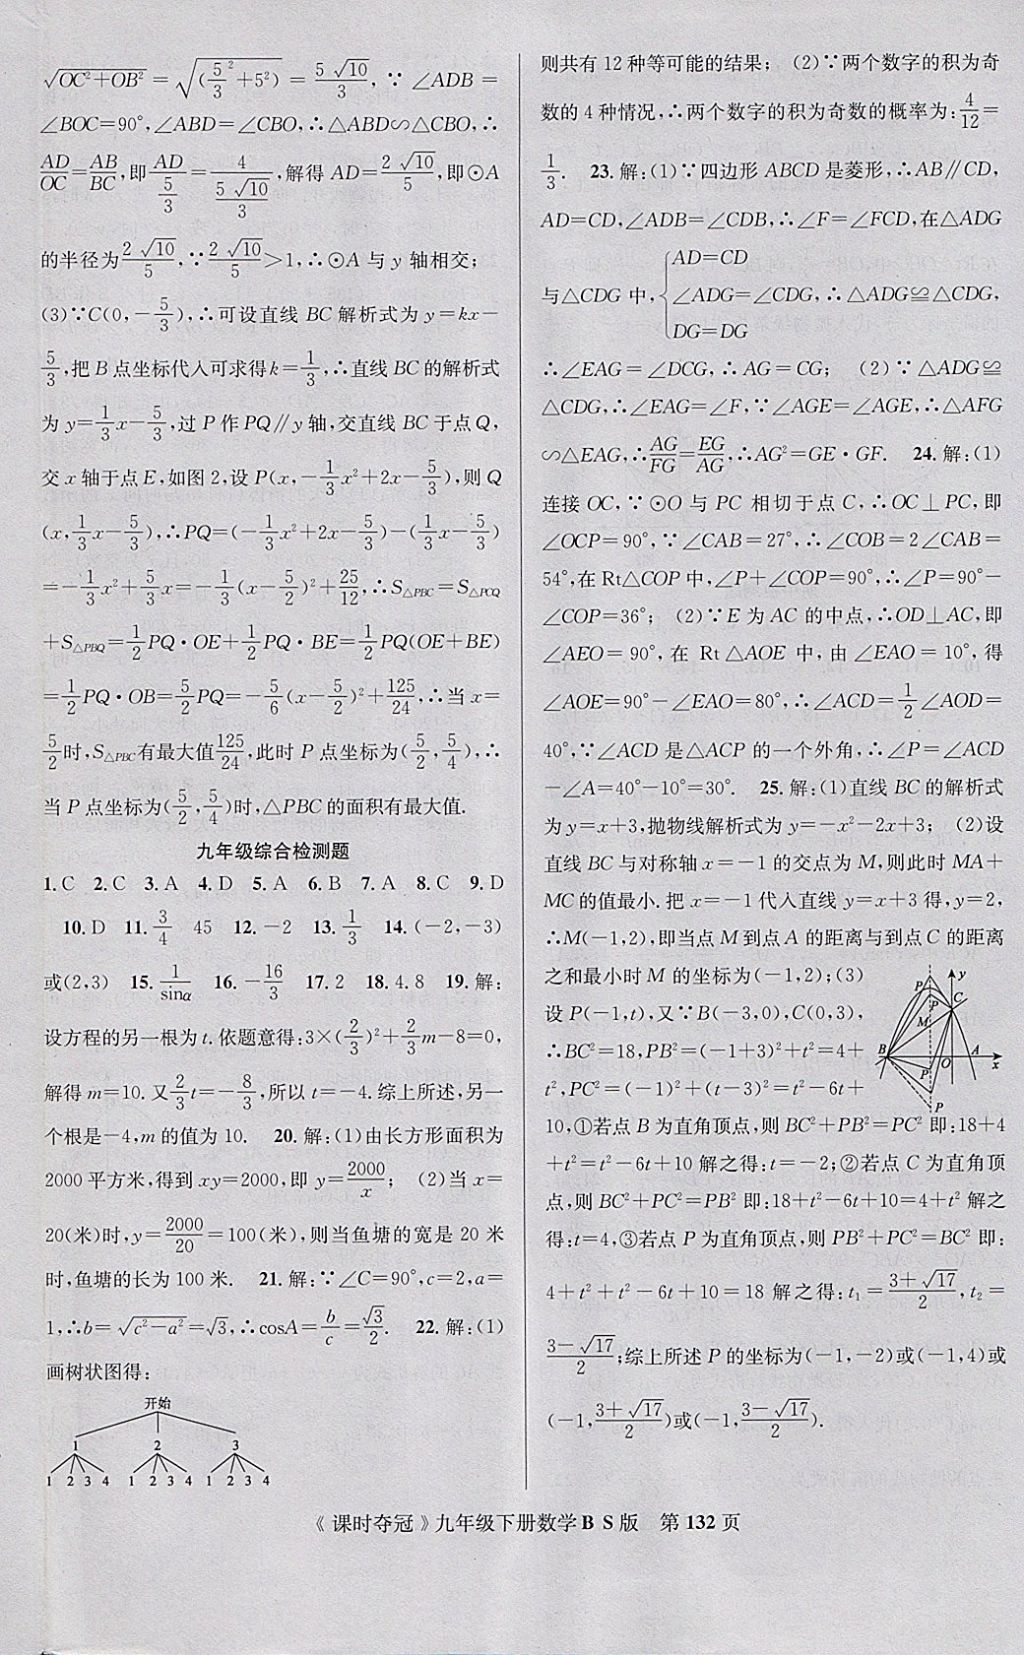 √(OC²+OB²) = √((5/3)²+5²) = 5√10/3, ∵ ∠ADB =
∠BOC=90°,∠ABD=∠CBO,∴△ABD∽△CBO,∴
AD/OC=AB/BC,即AD/(5/3)=4/(5√10/3),解得 AD=2√10/5,即⊙A
的半径为2√10/5,∵2√10/5>1,∴⊙A 与 y 轴相交;
(3)∵C(0,-5/3),∴可设直线 BC 解析式为 y=kx-
5/3,把 B 点坐标代入可求得k=1/3,∴直线 BC 的解析式
为 y=1/3x-5/3,过 P 作 PQ∥y 轴,交直线 BC 于点Q,
交 x 轴于点 E,如图 2,设 P(x,-1/3x²+2x-5/3),则 Q
(x,1/3x-5/3),∴PQ=(-1/3x²+2x-5/3)-(1/3x-5/3)
=-1/3x²+5/3x=-1/3(x-5/2)²+25/12,∴S△PBC=S△PCQ
+S△PBQ=1/2PQ·OE+1/2PQ·BE=1/2PQ(OE+BE)
=1/2PQ·OB=5/2PQ=-5/6(x-5/2)²+125/24,∴当 x=
5/2时,S△PBC有最大值125/24,此时 P 点坐标为(5/2,5/4),∴
当 P 点坐标为(5/2,5/4)时,△PBC的面积有最大值.
九年级综合检测题
1.C 2.C 3.A 4.D 5.A 6.B 7.A 8.C 9.D
10.D 11.3/4 45 12.-2 13.1/3 14.(-2,-3)
或(2,3) 15.1/sinα 16.-16/3 17.2 18.4.8 19.解:
设方程的另一根为 t.依题意得:3×(2/3)²+2/3m-8=0,
解得 m=10.又2/3t=-8/3,所以 t=-4.综上所述,另一
个根是-4,m 的值为 10. 20.解:(1)由长方形面积为
2000 平方米,得到 xy=2000,即 y=2000/x; (2)当 x=
20(米)时,y=2000/20=100(米),则当鱼塘的宽是 20 米
时,鱼塘的长为 100 米. 21.解:∵∠C=90°,c=2,a=
1,∴b=√(c²-a²)=√3,∴cosA=b/c=√3/2. 22.解:(1)
画树状图得:
开始
1 2 3
1 2 3 4 1 2 3 4 1 2 3 4
则共有 12 种等可能的结果; (2)∵两个数字的积为奇
数的 4 种情况,∴两个数字的积为奇数的概率为:4/12=
1/3. 23.解:(1)∵四边形 ABCD 是菱形,∴AB∥CD,
AD=CD,∠ADB=∠CDB,∴∠F=∠FCD,在△ADG
AD=CD
与△CDG 中,{∠ADG=∠CDG,∴△ADG≌△CDG,
DG=DG
∴∠EAG=∠DCG,∴AG=CG; (2)∵△ADG≌
△CDG,∴∠EAG=∠F,∵∠AGE=∠AGE,∴△AFG
∽△EAG,∴AG/FG=EG/AG,∴AG²=GE·GF. 24.解:(1)
连接 OC,∵⊙O 与 PC 相切于点 C,∴OC⊥PC,即
∠OCP=90°,∵∠CAB=27°,∴∠COB=2∠CAB=
54°,在 Rt△COP 中,∠P+∠COP=90°,∴∠P=90°-
∠COP=36°; (2)∵E 为 AC 的中点,∴OD⊥AC,即
∠AEO=90°,在 Rt△AOE 中,由∠EAO=10°,得
∠AOE=90°-∠EAO=80°,∴∠ACD=1/2∠AOD=
40°,∵∠ACD 是△ACP 的一个外角,∴∠P=∠ACD
-∠A=40°-10°=30°. 25.解:(1)直线 BC 的解析式
为 y=x+3,抛物线解析式为 y=-x²-2x+3; (2)设
直线 BC 与对称轴 x=-1 的交点为 M,则此时 MA+
MC 的值最小.把 x=-1 代入直线 y=x+3 得,y=2,
∴M(-1,2),即当点 M 到点 A 的距离与到点 C 的距离
之和最小时 M 的坐标为(-1,2);(3)
设 P(-1,t),又∵B(-3,0),C(0,3),
∴BC²=18,PB²=(-1+3)²+t²=4+
t²,PC²=(-1)²+(t-3)²=t²-6t+
10,①若点 B 为直角顶点,则 BC²+PB²=PC² 即:18+4
+t²=t²-6t+10 解之得:t=-2;②若点 C 为直角顶
点,则 BC²+PC²=PB² 即:18+t²-6t+10=4+t² 解之
得:t=4,③若点 P 为直角顶点,则 PB²+PC²=BC² 即:
4+t²+t²-6t+10=18 解之得:t₁=(3+√17)/2,t₂=
(3-√17)/2;综上所述 P 的坐标为(-1,-2)或(-1,4)或
(-1,(3+√17)/2)或(-1,(3-√17)/2).
y
P
P
C
M
B
O
A
x
P
P
《课时夺冠》九年级下册数学BS版 第 132 页